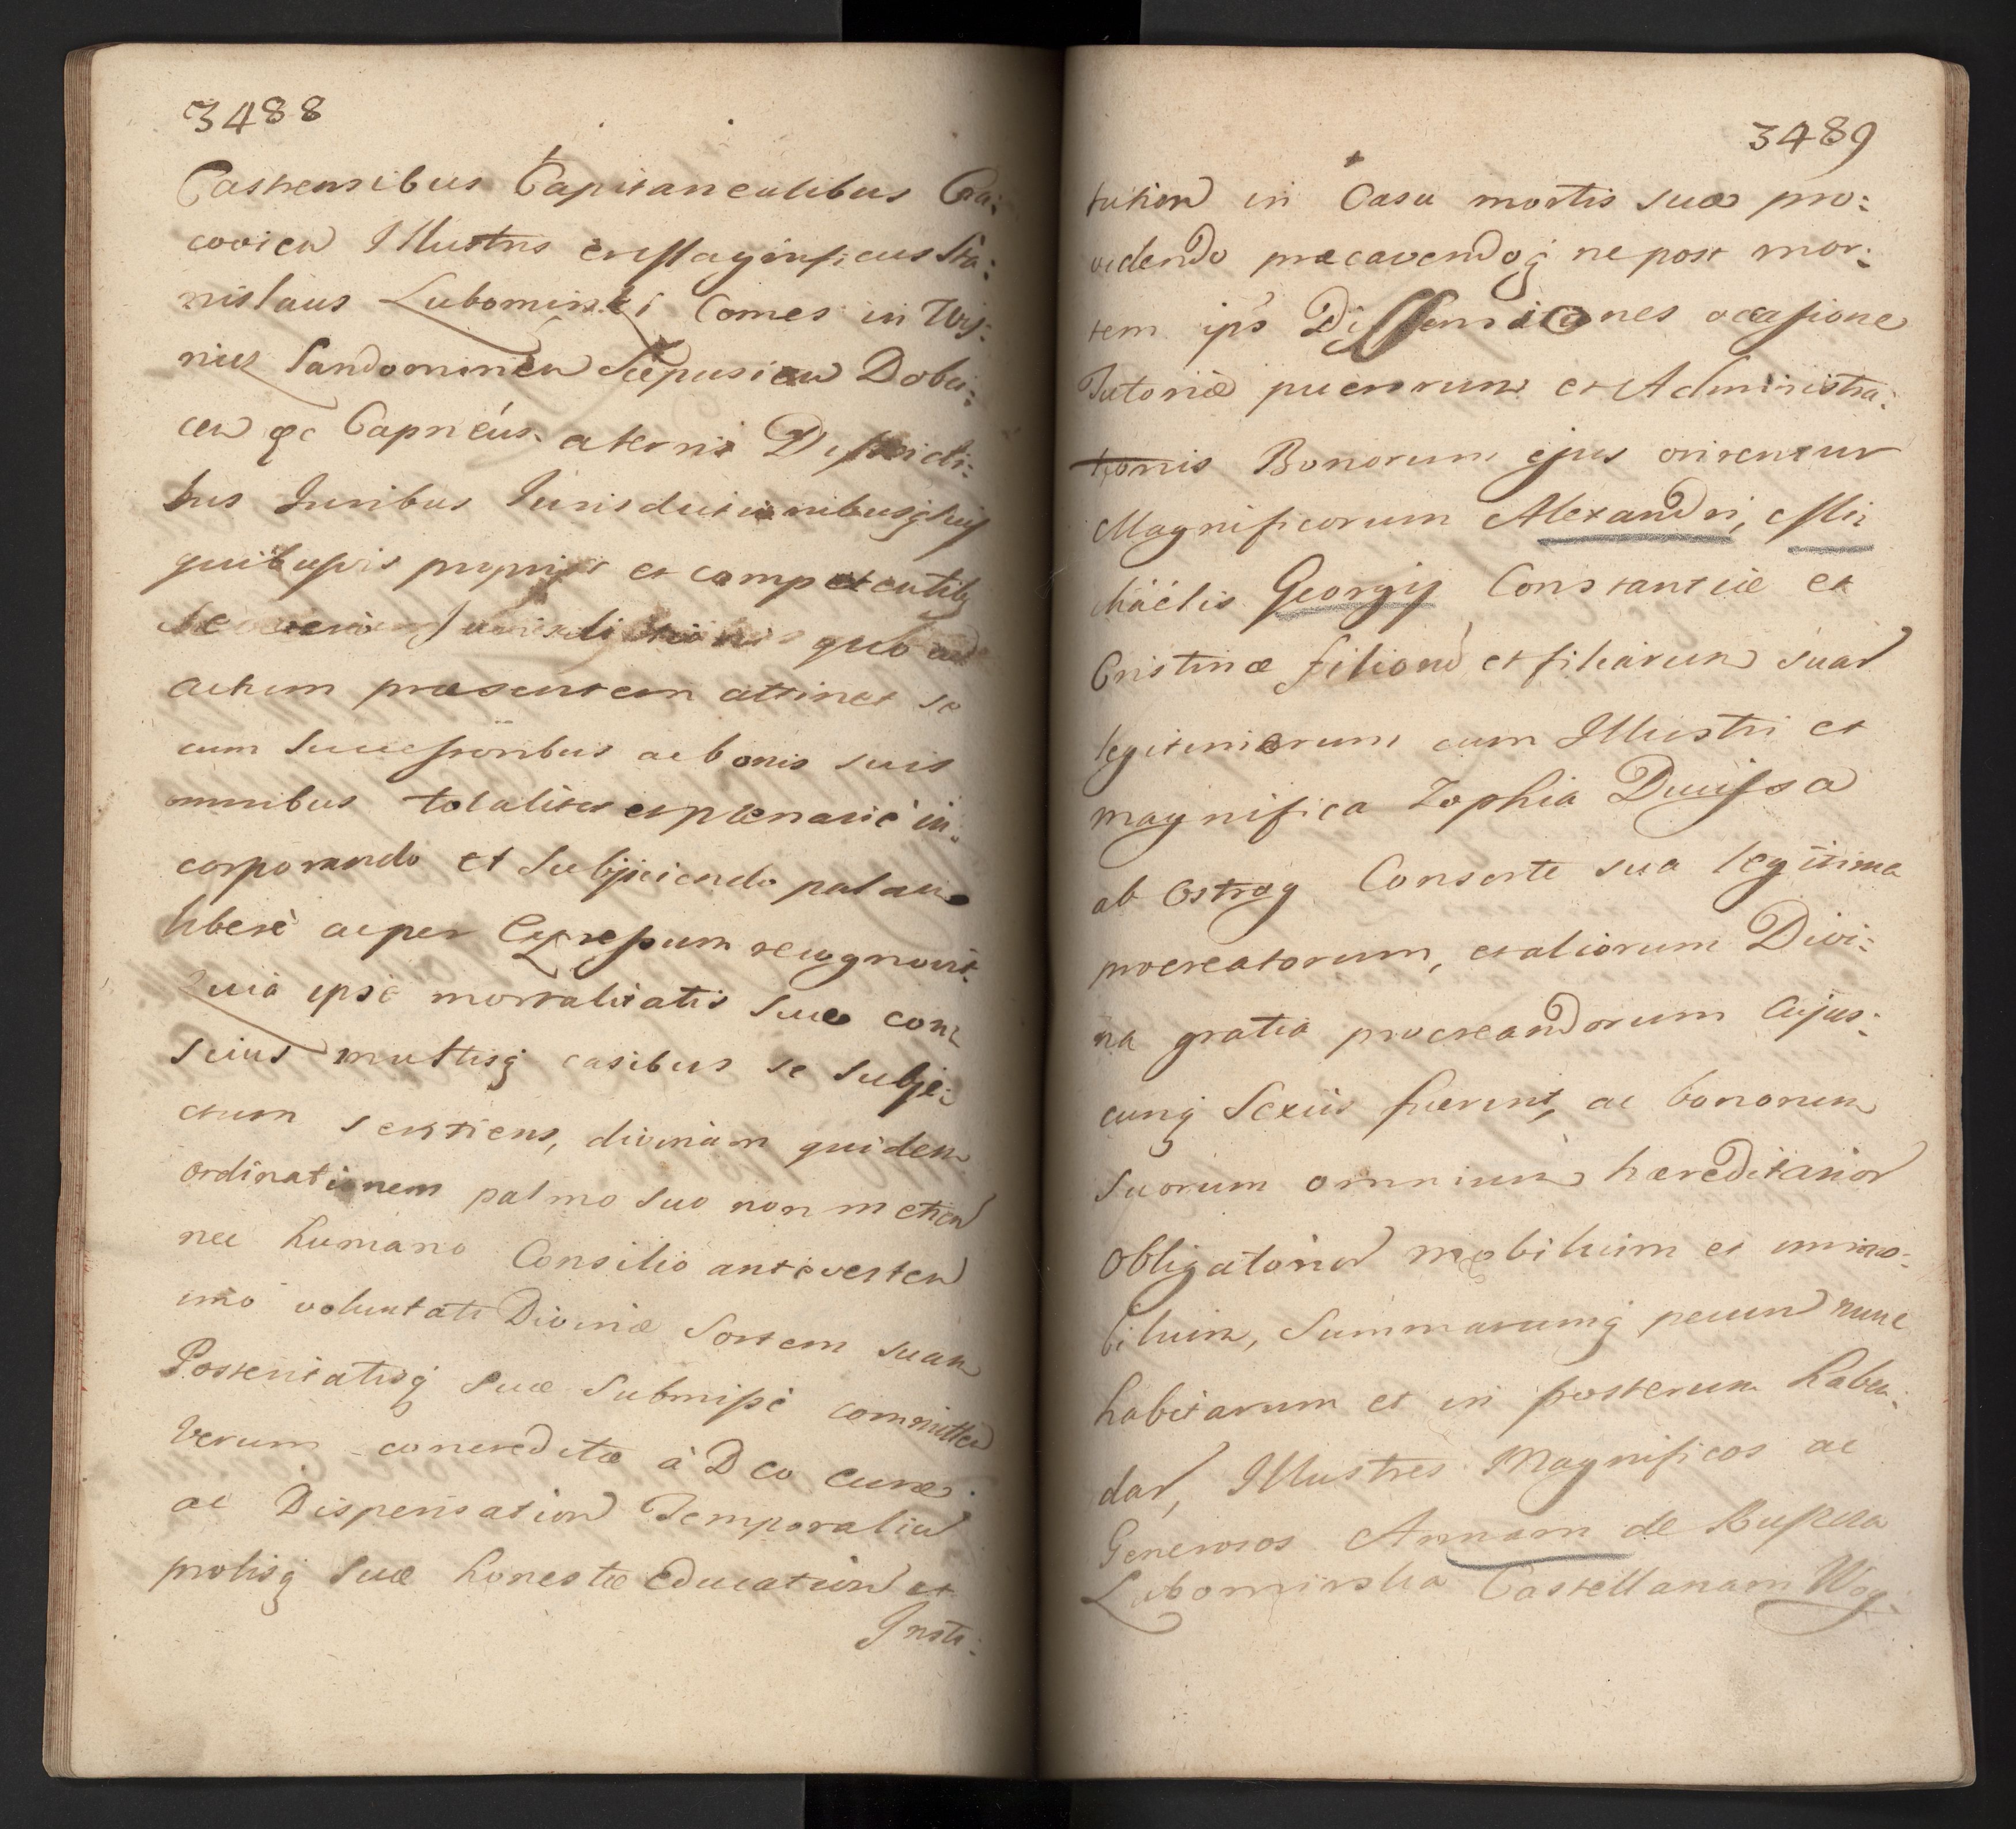 3488
Castrensibus Capitanealibus Cra:
covien Illustris et Magnificus Sta:
nislaus Lubomirski Comes in Wis:
nicz Sandomirien Scepusien Dobci:
cen &c Capneus. a terris Districti:
bus Iuribus Iurisdictionibusq suis
quibusvis proprijs et competentib
Iurisdictionis quo ad
actum præsentem attinet se
cum Successoribus ac bonis suis
omnibus totaliter et plenarie in:
corporando et Subijciendo palam
liberè ac per Expressum recognovit.
Quia ipse mortalitatis suæ con:
scius multisq casibus se subje:
ctum sentiens, divinam quidem
ordinationem palmo suo non metien
nec humano Consilio anteverten
imo voluntati Divinæ Sortem suam
Posteritatisq suæ Submissè committen
Verum concreditæ à Deo curæ
ac Dispensation Temporalium
prolisq suæ honestæ Education et
Insti:
3489
tution in Casu mortis suæ pro:
videndo præcavendoq ne post mor:
tem ips Dissensiones occasione
Tutoriæ puerorum et Administra:
tionis Bonorum ejus orirentur
Magnificorum Alexandri, Mi:
chäelis Georgij Constantiæ et
Cristinæ filiord et filiarum suar
legitimorum cum Illustri et
magnifica Zophia Ducissa
ab Ostrog Consorte sua legitima
procreatorum, et aliorum Divi:
na gratia procreandorum Cujus:
cunq Sexus fuerint, ac bonorum
suorum omnium hæreditarior
Obligatorior mobilium et immo:
bilium, Summarumq pecun nunc
habitarum et in posterum haben:
dar, Illustres Magnificos ac
Generosos Annam de Ruszcza
Lubomirska Castellanam Woy: